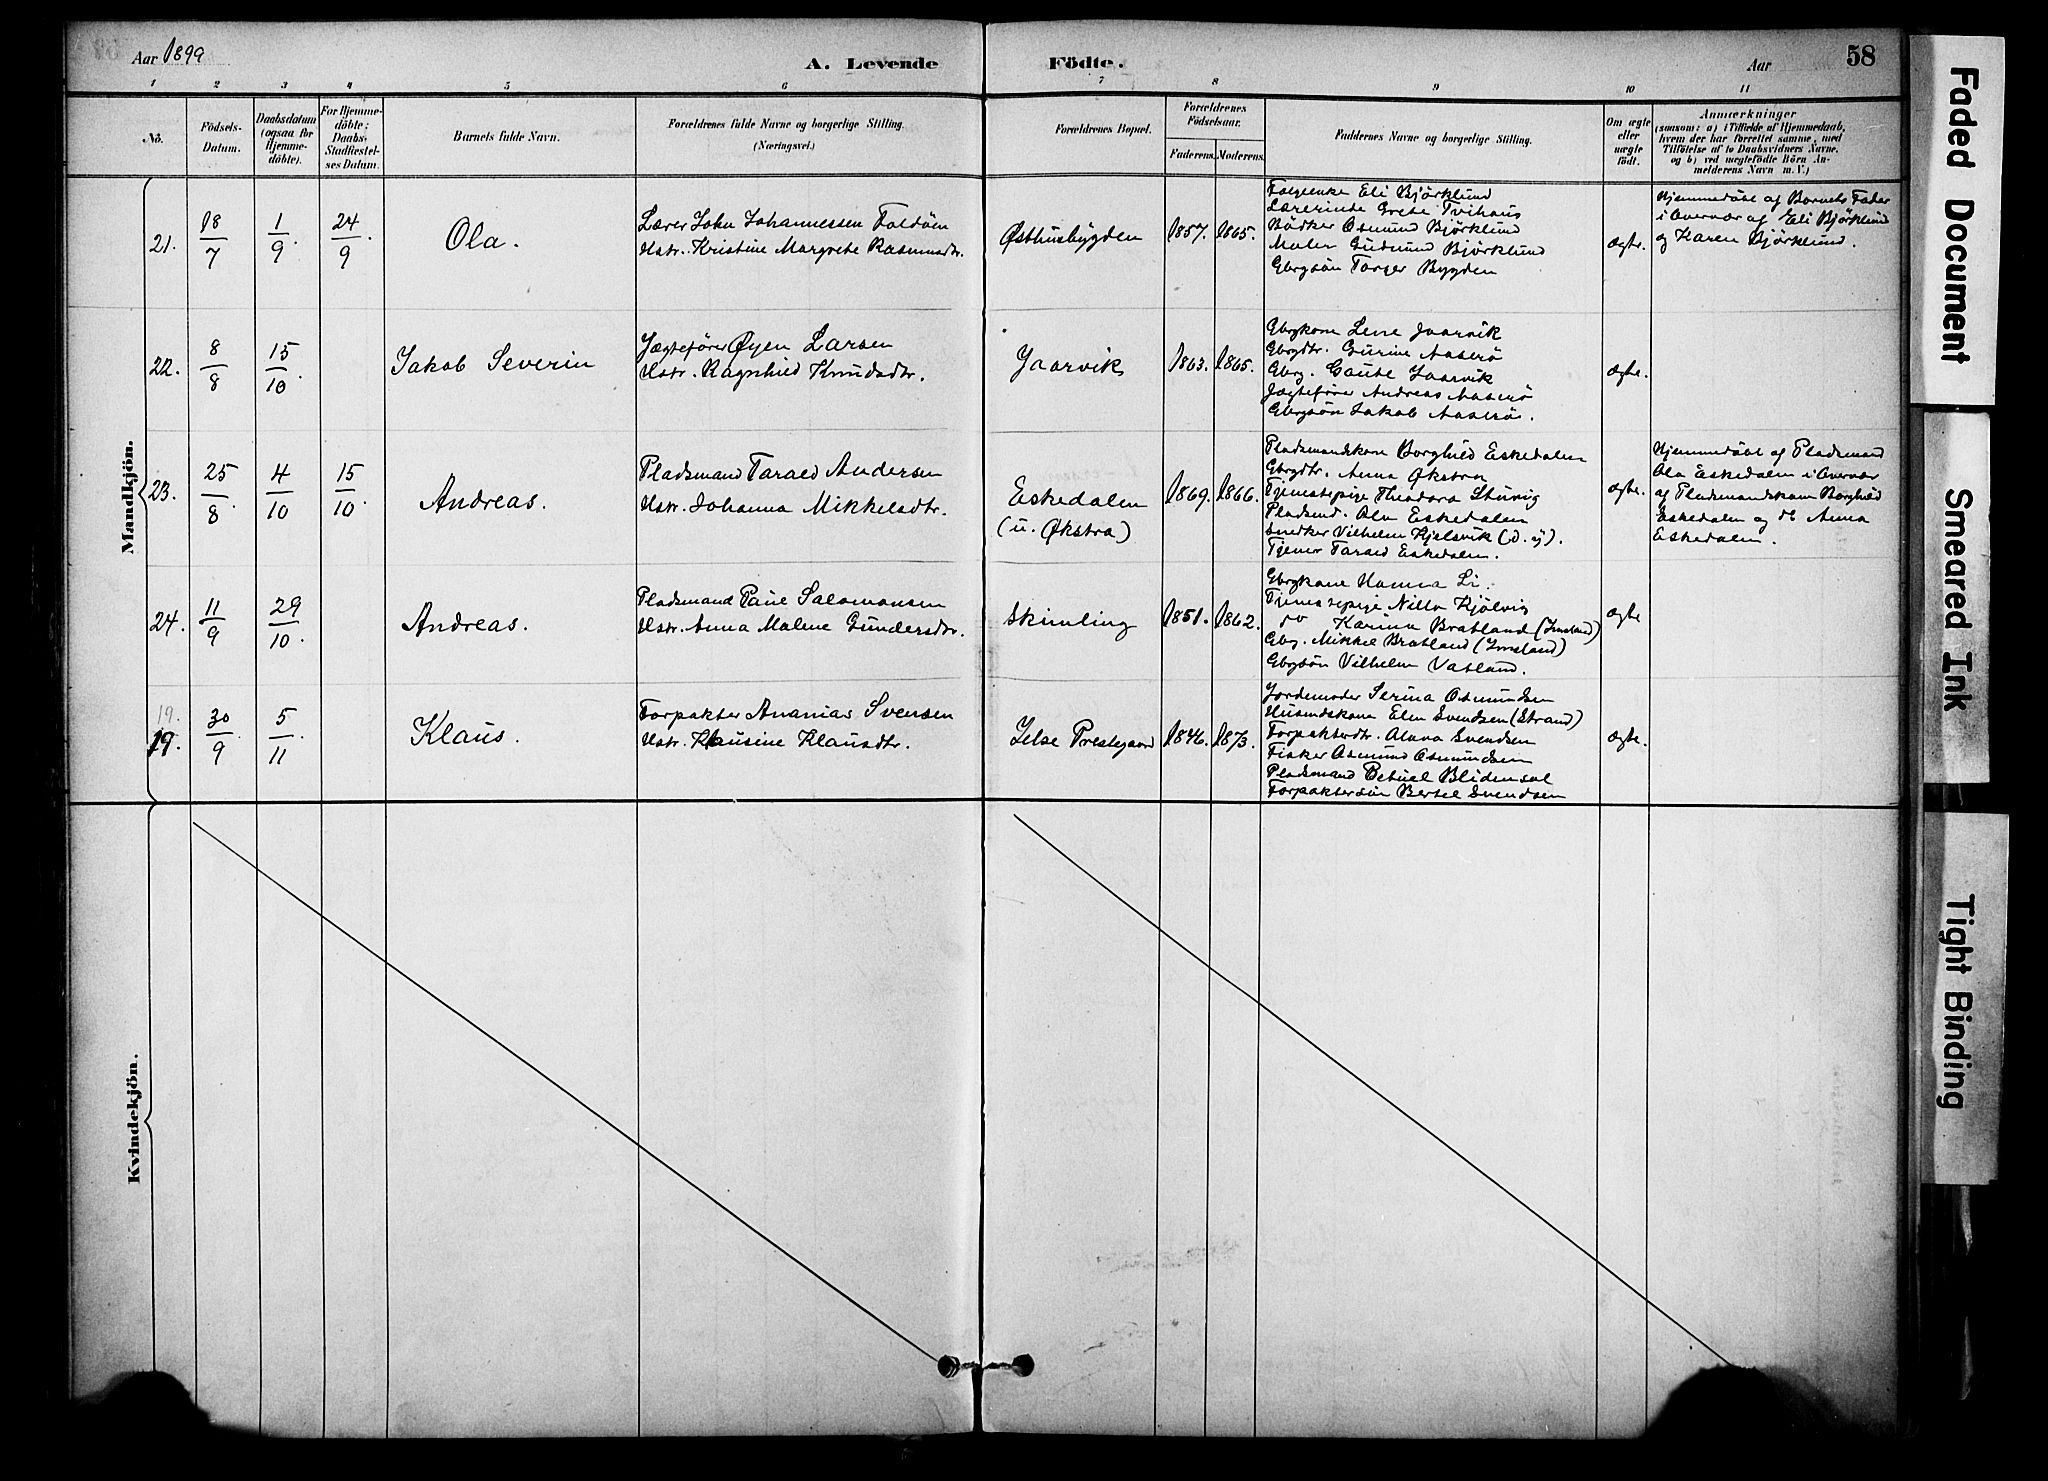 Aar 1899
A. Levende Födte.
Aar
58
1 2 3 4 5 6 7 8 9 10 11
No.
Födsels-
Datum.
Daabsdatum
(ogsaa for
Hjemme-
döbte).
For Hjemme-
döbte:
Daabs-
Stadfæstel-
ses Datum.
Barnets fulde Navn.
Forældrenes fulde Navne og borgerlige Stilling.
(Næringsvei.)
Forældrenes Bopæl.
Forældrenes
Födselsaar.
Faderens. Moderens.
Faddernes Navne og borgerlige Stilling.
Om ægte
eller
uægte
født.
Anmærkninger
(saasom: a) i Tilfælde af Hjemmedaab,
hvem der har forrettet samme, med
Tilföielse af to Daabsvidners Navne,
og b) ved uægtefödte Börn An-
melderens Navn m. V.)
Mandkjön.
21.
18/7
1/9.
24/9.
Ola.
Lærer John Johannessen Foldöen
Hstr. Kristine Margrete Rasmusdtr.
Østhusbygden
1857. 1865.
Eli Björklund
Lærerinde Grete Tvihaus
Bödker Osmund Björklund
Maler Gudmund Björklund
Gbrgsön Torger Bygden
ægte.
Hjemmedöbt af Barnets Fader
i Overvær af Eli Björklund
og Karen Björklund.
22.
8/8
15/10.
Jakob Severin
Jægtefører Øyen Larsen
Hstr. Ragnhild Knudsdtr.
Jaarvik
1863. 1865.
Gbrgkone Lene Jaarvik
Gbrgdtr. Gurine Aaserö
Gbrg. Gaute Jaarvik
Jægtefører Andreas Aaserö
Gbrgsön Jakob Aaserö.
ægte.
23.
25/8.
4/10
15/10.
Andreas.
Pladsmand Tarald Andersen
Hstr. Johanna Mikkelsdtr.
Eskedalen
(u. Økstra)
1869. 1866.
Pladsmandskone Borghild Eskedalen
Gbrgdtr. Anna Økstra
Tjenestepige Theodora
Pladsmd. Ola Eskedalen
Snedker Vilhelm Hjelsvik
Tjener Tarald Eskedalen.
ægte.
Hjemmedöbt af Pladsmand
Ola Eskedalen i Overvær
af Pladsmandskone Borghild
Eskedalen og Anna
Eskedalen.
24.
11/9
29/10.
Andreas.
Pladsmand Paul Salomonsen
Hstr. Anna Malene Gundersdtr.
Skimling
1851. 1862.
Gbrgkone Hanna Li.
Tjenestepige Nilla Kjölvig
do Karina Bratland (Imsland)
Gbg. Mikkel Bratland (Imsland)
Gbrgsön Vilhelm Vatland.
ægte
19.
19.
30/9
5/11
Klaus.
Forpakter Ananias Svensen
Hstr. Klausine Klausdtr.
Jelse Prestegaard
1846. 1873.
Jordemoder Serina Osmundsen
Husmdskone Elen Svendsen (Strand)
Forpakterdtr. Olava Svendsen
Fisker Osmund Osmundsen
Pladsmand Betuel Blidensol
Forpaktersön Bertel Svendsen
ægte.
Kvindekjön.
Faded Document
Smeared Ink
Tight Binding